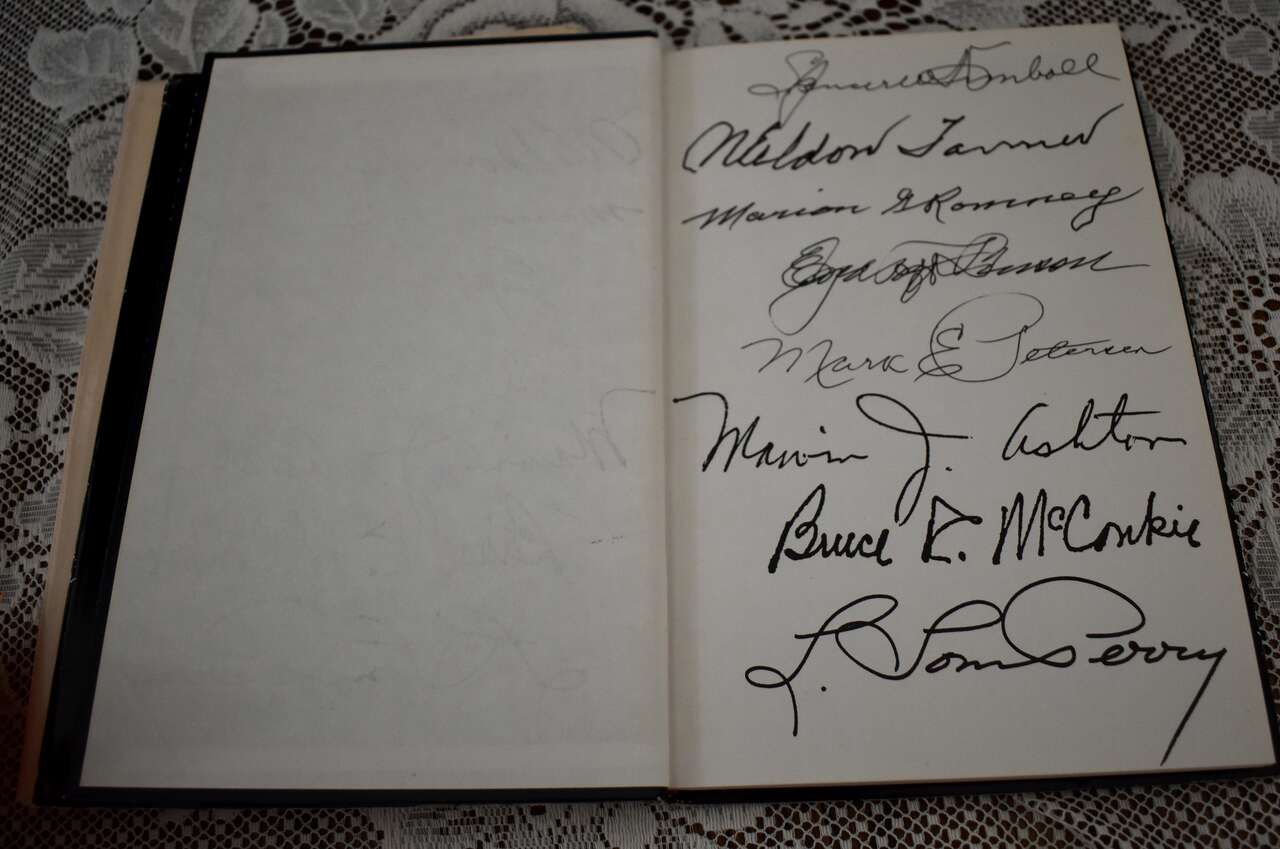 Spencer W Kimball
N Eldon Tanner
Marion G Romney
Ezra Taft Benson
Mark E Petersen
Marvin J. Ashton
Bruce R. McConkie
L. Tom Perry